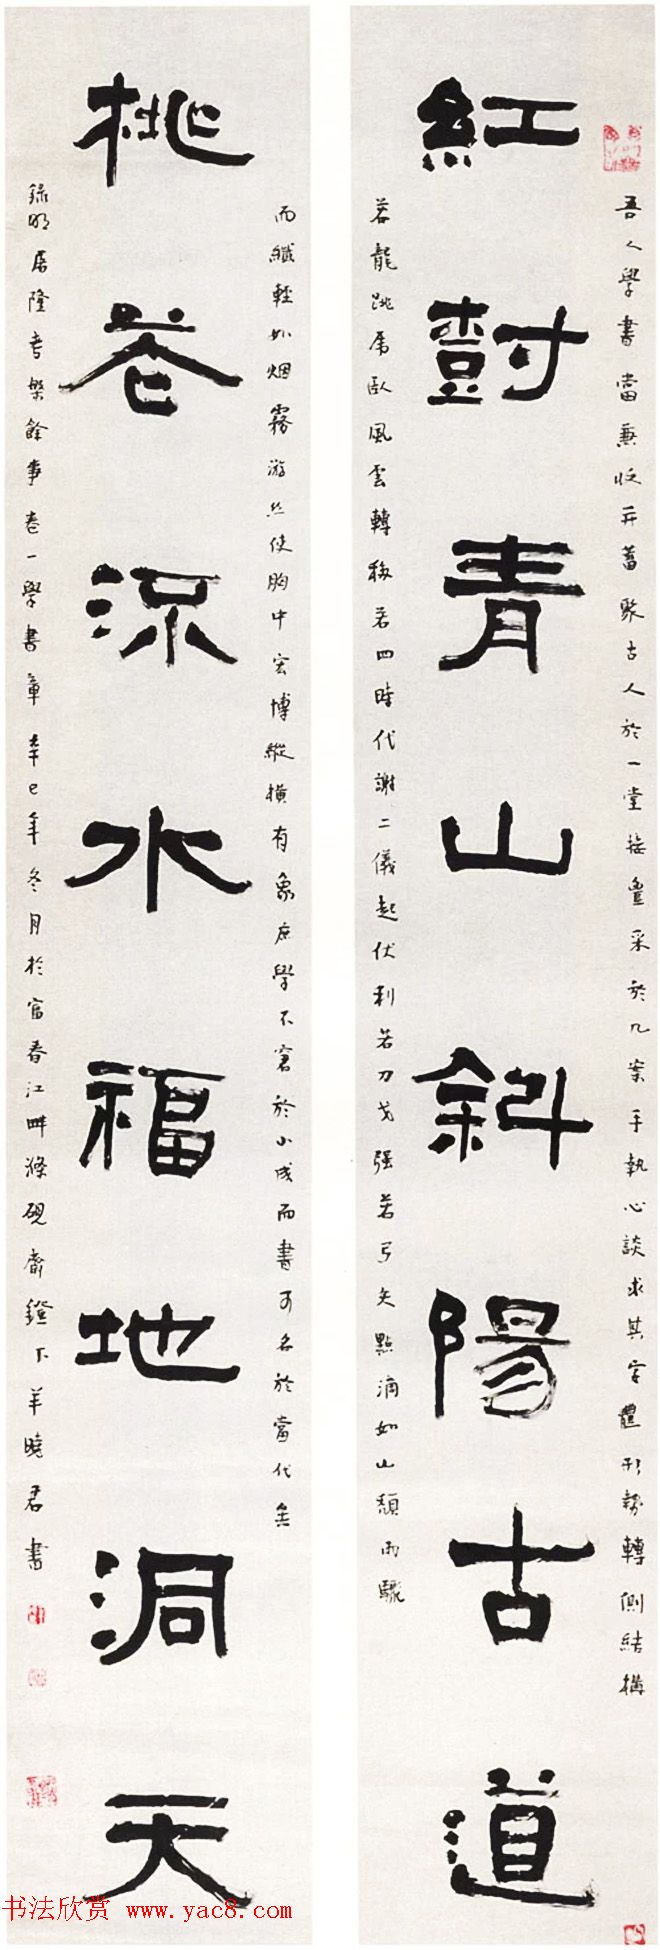 吾人學書當兼收并蓄聚古人於一堂接豐采於几案手執心談求其字體形勢轉側結構
紅樹青山斜陽古道
若龍跳虎臥風雲轉移若四時代謝二儀起伏利若刀戈强若弓矢點滴如山頹雨驟
而纖輕如烟霧游絲使胸中宏博縱横有象庶學不窘於小成而書可名於當代矣
桃花流水福地洞天
錄明屠隆考槃餘事卷一學書章 辛巳年冬月於富春江畔滌硯齋鐙下羊曉君書
书法欣赏 www.yac8.com